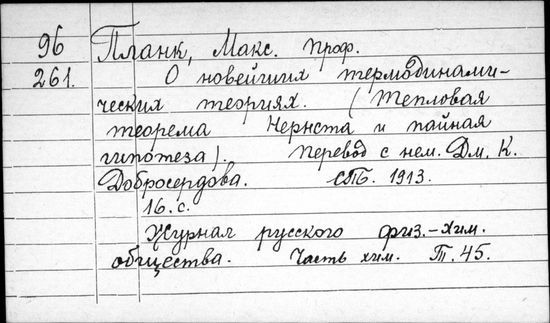 96 Планк, Макс. Проф.
261. О новейших термодинами-
ческих теориях. (Тепловая
теорема Нернста и пайная
гипотеза). Перевод с нем. Дм. К.
Добросердова. СПБ. 1913.
16. с.
Журнал русского физ.-хим.
общества. Часть хим. Т. 45.